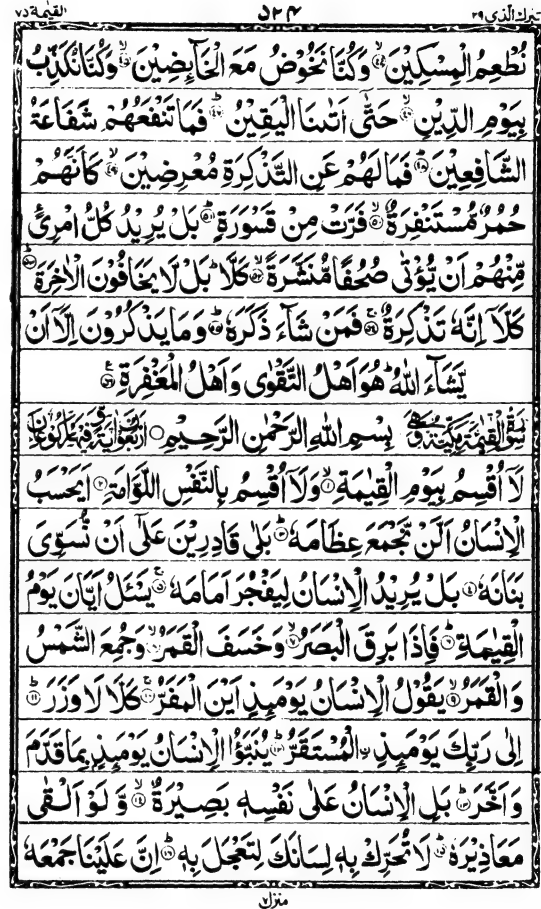 تبرك الذي ٢٩ ٥٢٤ القيمة ٧٥
نُطْعِمُ الْمِسْكِيْنَ ۙ۝٤٤ وَكُنَّا نَخُوْضُ مَعَ الْخَآئِضِيْنَ ۙ۝٤٥ وَكُنَّا نُكَذِّبُ
بِيَوْمِ الدِّيْنِ ۙ۝٤٦ حَتّٰٓى اَتٰىنَا الْيَقِيْنُ ؕ۝٤٧ فَمَا تَنْفَعُهُمْ شَفَاعَةُ
الشَّافِعِيْنَ ؕ۝٤٨ فَمَا لَهُمْ عَنِ التَّذْكِرَةِ مُعْرِضِيْنَ ۙ۝٤٩ كَاَنَّهُمْ
حُمُرٌ مُّسْتَنْفِرَةٌ ۙ۝٥٠ فَرَّتْ مِنْ قَسْوَرَةٍ ؕ۝٥١ بَلْ يُرِيْدُ كُلُّ امْرِئٍ
مِّنْهُمْ اَنْ يُّؤْتٰى صُحُفًا مُّنَشَّرَةً ۙ۝٥٢ كَلَّا ؕ بَلْ لَا يَخَافُوْنَ الْاٰخِرَةَ ؕ۝٥٣
كَلَّآ اِنَّهٗ تَذْكِرَةٌ ۚ۝٥٤ فَمَنْ شَآءَ ذَكَرَهٗ ؕ۝٥٥ وَمَا يَذْكُرُوْنَ اِلَّآ اَنْ
يَّشَآءَ اللّٰهُ ؕ هُوَ اَهْلُ التَّقْوٰى وَاَهْلُ الْمَغْفِرَةِ ۝٥٦
سورة القيمة مكية وهي بِسْمِ اللّٰهِ الرَّحْمٰنِ الرَّحِيْمِ ۝ اربعون اية وفيها ركوعان
لَآ اُقْسِمُ بِيَوْمِ الْقِيٰمَةِ ۙ۝١ وَلَآ اُقْسِمُ بِالنَّفْسِ اللَّوَّامَةِ ؕ۝٢ اَيَحْسَبُ
الْاِنْسَانُ اَلَّنْ نَّجْمَعَ عِظَامَهٗ ؕ۝٣ بَلٰى قَادِرِيْنَ عَلٰٓى اَنْ نُّسَوِّىَ
بَنَانَهٗ ۝٤ بَلْ يُرِيْدُ الْاِنْسَانُ لِيَفْجُرَ اَمَامَهٗ ۚ۝٥ يَسْـَٔلُ اَيَّانَ يَوْمُ
الْقِيٰمَةِ ؕ۝٦ فَاِذَا بَرِقَ الْبَصَرُ ۙ۝٧ وَخَسَفَ الْقَمَرُ ۙ۝٨ وَجُمِعَ الشَّمْسُ
وَالْقَمَرُ ۙ۝٩ يَقُوْلُ الْاِنْسَانُ يَوْمَئِذٍ اَيْنَ الْمَفَرُّ ۚ۝١٠ كَلَّا لَا وَزَرَ ؕ۝١١
اِلٰى رَبِّكَ يَوْمَئِذِ ۨالْمُسْتَقَرُّ ؕ۝١٢ يُنَبَّؤُا الْاِنْسَانُ يَوْمَئِذٍۢ بِمَا قَدَّمَ
وَاَخَّرَ ؕ۝١٣ بَلِ الْاِنْسَانُ عَلٰى نَفْسِهٖ بَصِيْرَةٌ ۙ۝١٤ وَّلَوْ اَلْقٰى
مَعَاذِيْرَهٗ ؕ۝١٥ لَا تُحَرِّكْ بِهٖ لِسَانَكَ لِتَعْجَلَ بِهٖ ؕ۝١٦ اِنَّ عَلَيْنَا جَمْعَهٗ
منزل ٧